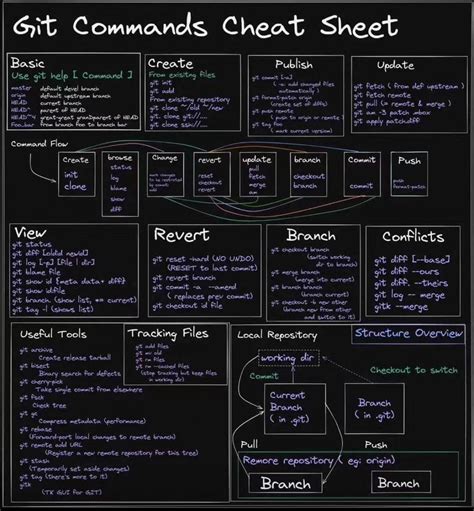 Git Commands Cheat Sheet
Basic
Use git help [ Command ]
master default devel branch
origin default upstream branch
HEAD current branch
HEAD^ parent of HEAD
HEAD~4 great-great grandparent of HEAD
foo..bar from branch foo to branch bar
Create
From existing files
git init
git add
From existing repository
git clone ~/old ~/new
git clone git://...
git clone ssh://...
Publish
git commit [-a]
(-a: add changed files
automatically )
git format-patch origin
(create set of diffs)
git push remote
( push to origin or remote )
git tag foo
( mark current version)
Update
git fetch ( from def upstream )
git fetch remote
git pull (= remote & merge )
git am -3 patch.mbox
git apply patch.diff
Command Flow
Create
init
clone
browse
status
log
blame
show
diff
Change
mark changes
to be restricted
by commit:
add
revert
reset
checkout
revert
update
pull
fetch
merge
am
branch
checkout
branch
Commit
commit
Push
push
format-patch
View
git status
git diff [oldid newid]
git log [-p] [file | dir]
git blame file
git show id [meta data+ diff]
git show id:file
git branch (show list, ** current)
git tag -l (shows list)
Revert
git reset --hard (NO UNDO)
(RESET to last commit)
git revert branch
git commit -a --amend
( replaces prev commit)
git checkout id file
Branch
git checkout branch
(switch working
dir to branch)
git merge branch
(merge into current)
git branch branch
(branch current)
git checkout -b new other
(branch new from other
and switch to it)
Conflicts
git diff [--base]
git diff --ours
git diff --theirs
git log -- merge
gitk --merge
Useful Tools
git archive
Create release tarball
git bisect
Binary search for defects
git cherry-pick
Take single commit from elsewhere
git fsck
Check tree
git gc
Compress metadata (performance)
git rebase
(Forward-port local changes to remote branch)
git remote add URL
(Register a new remote repository for this tree)
git stash
(Temporarily set aside changes)
git tag (there's more to it)
gitk
(TK GUI for GIT)
Tracking Files
git add files
git mv old
git rm files
git rm --cached files
(stop tracking but keep files
in working dir)
Local Repository
Structure Overview
working dir
Commit
Checkout to switch
Current
Branch
( in .git)
Branch
( in .git)
Pull
Push
Remore repository ( eg: origin)
Branch
Branch